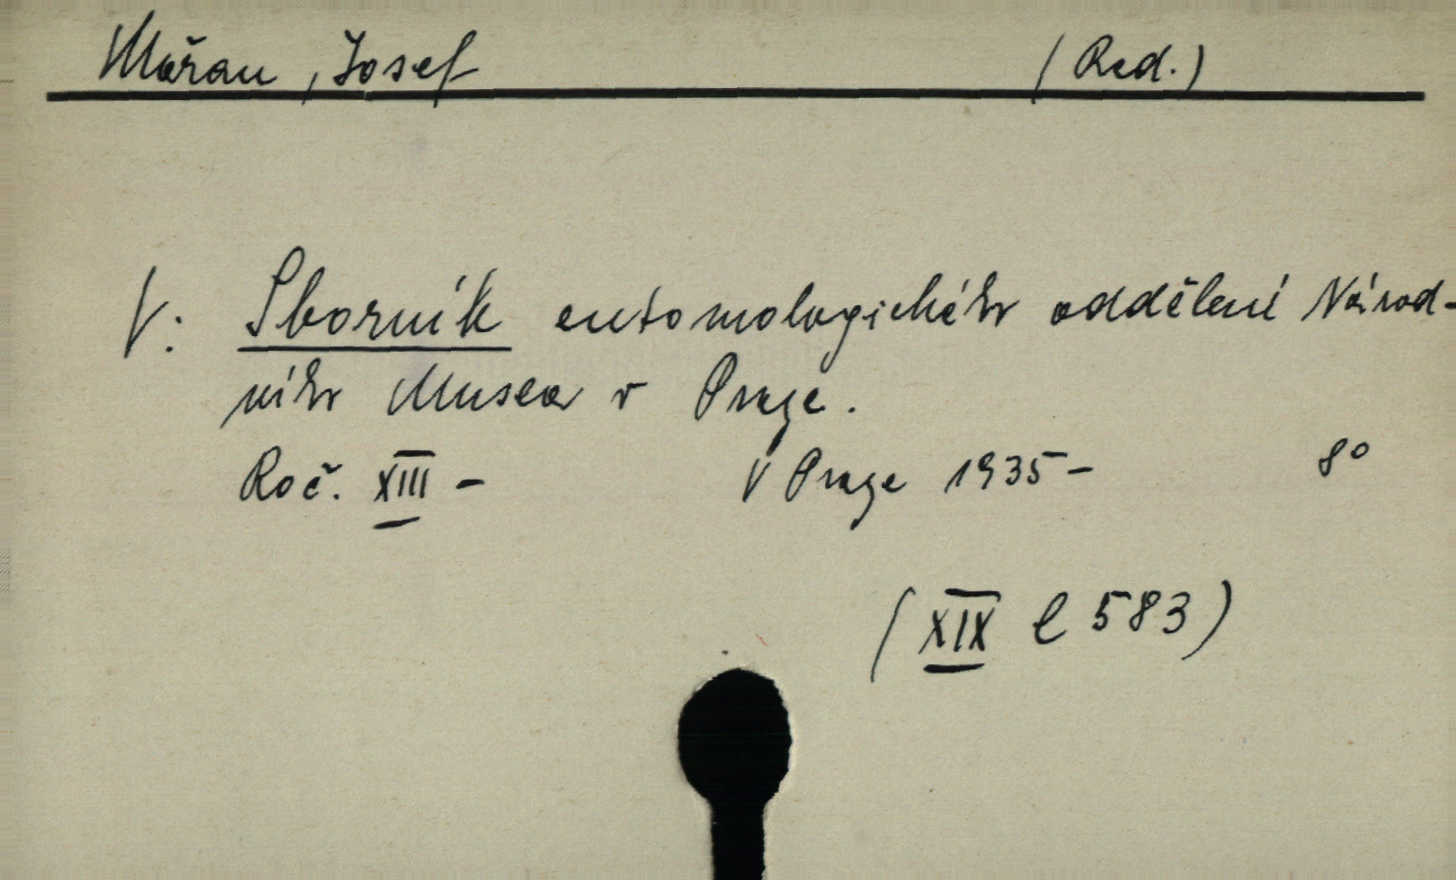 Mařan, Josef (Red.)
V: Sborník entomologického oddělení Národ-
ního Musea v Praze.
Roč. XIII - V Praze 1935- 8°
(XIX e 583)